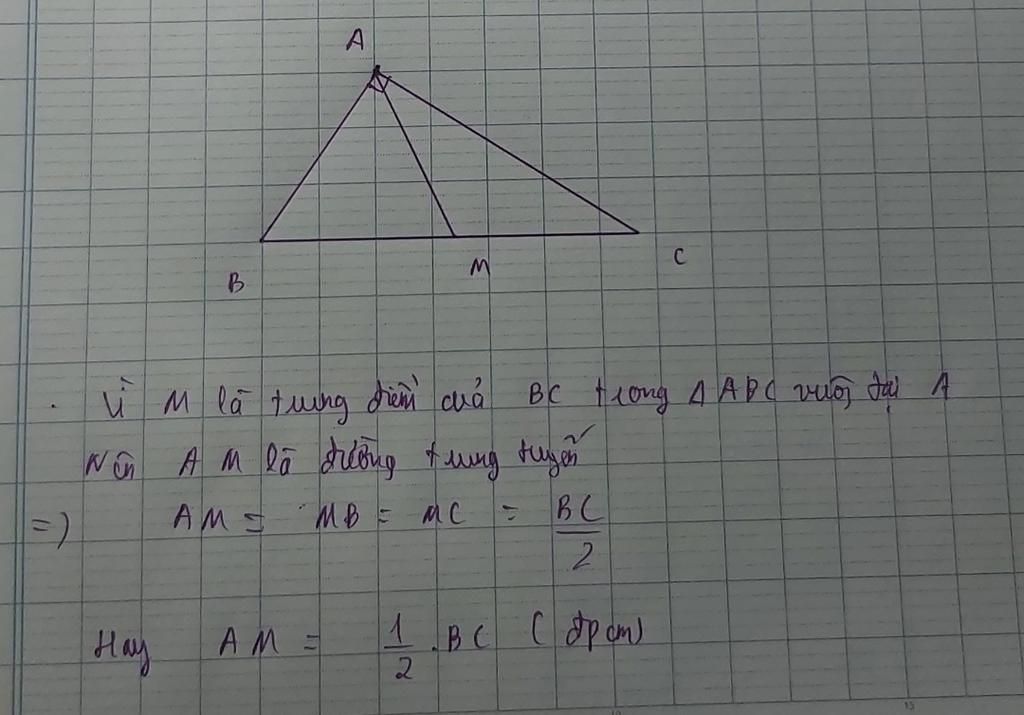 A
B
M
C
. Vì M là trung điểm của BC trong Δ ABC vuông tại A
Nên AM là đường trung tuyến
=) AM = MB = MC = BC/2
Hay AM = 1/2 . BC (đpcm)